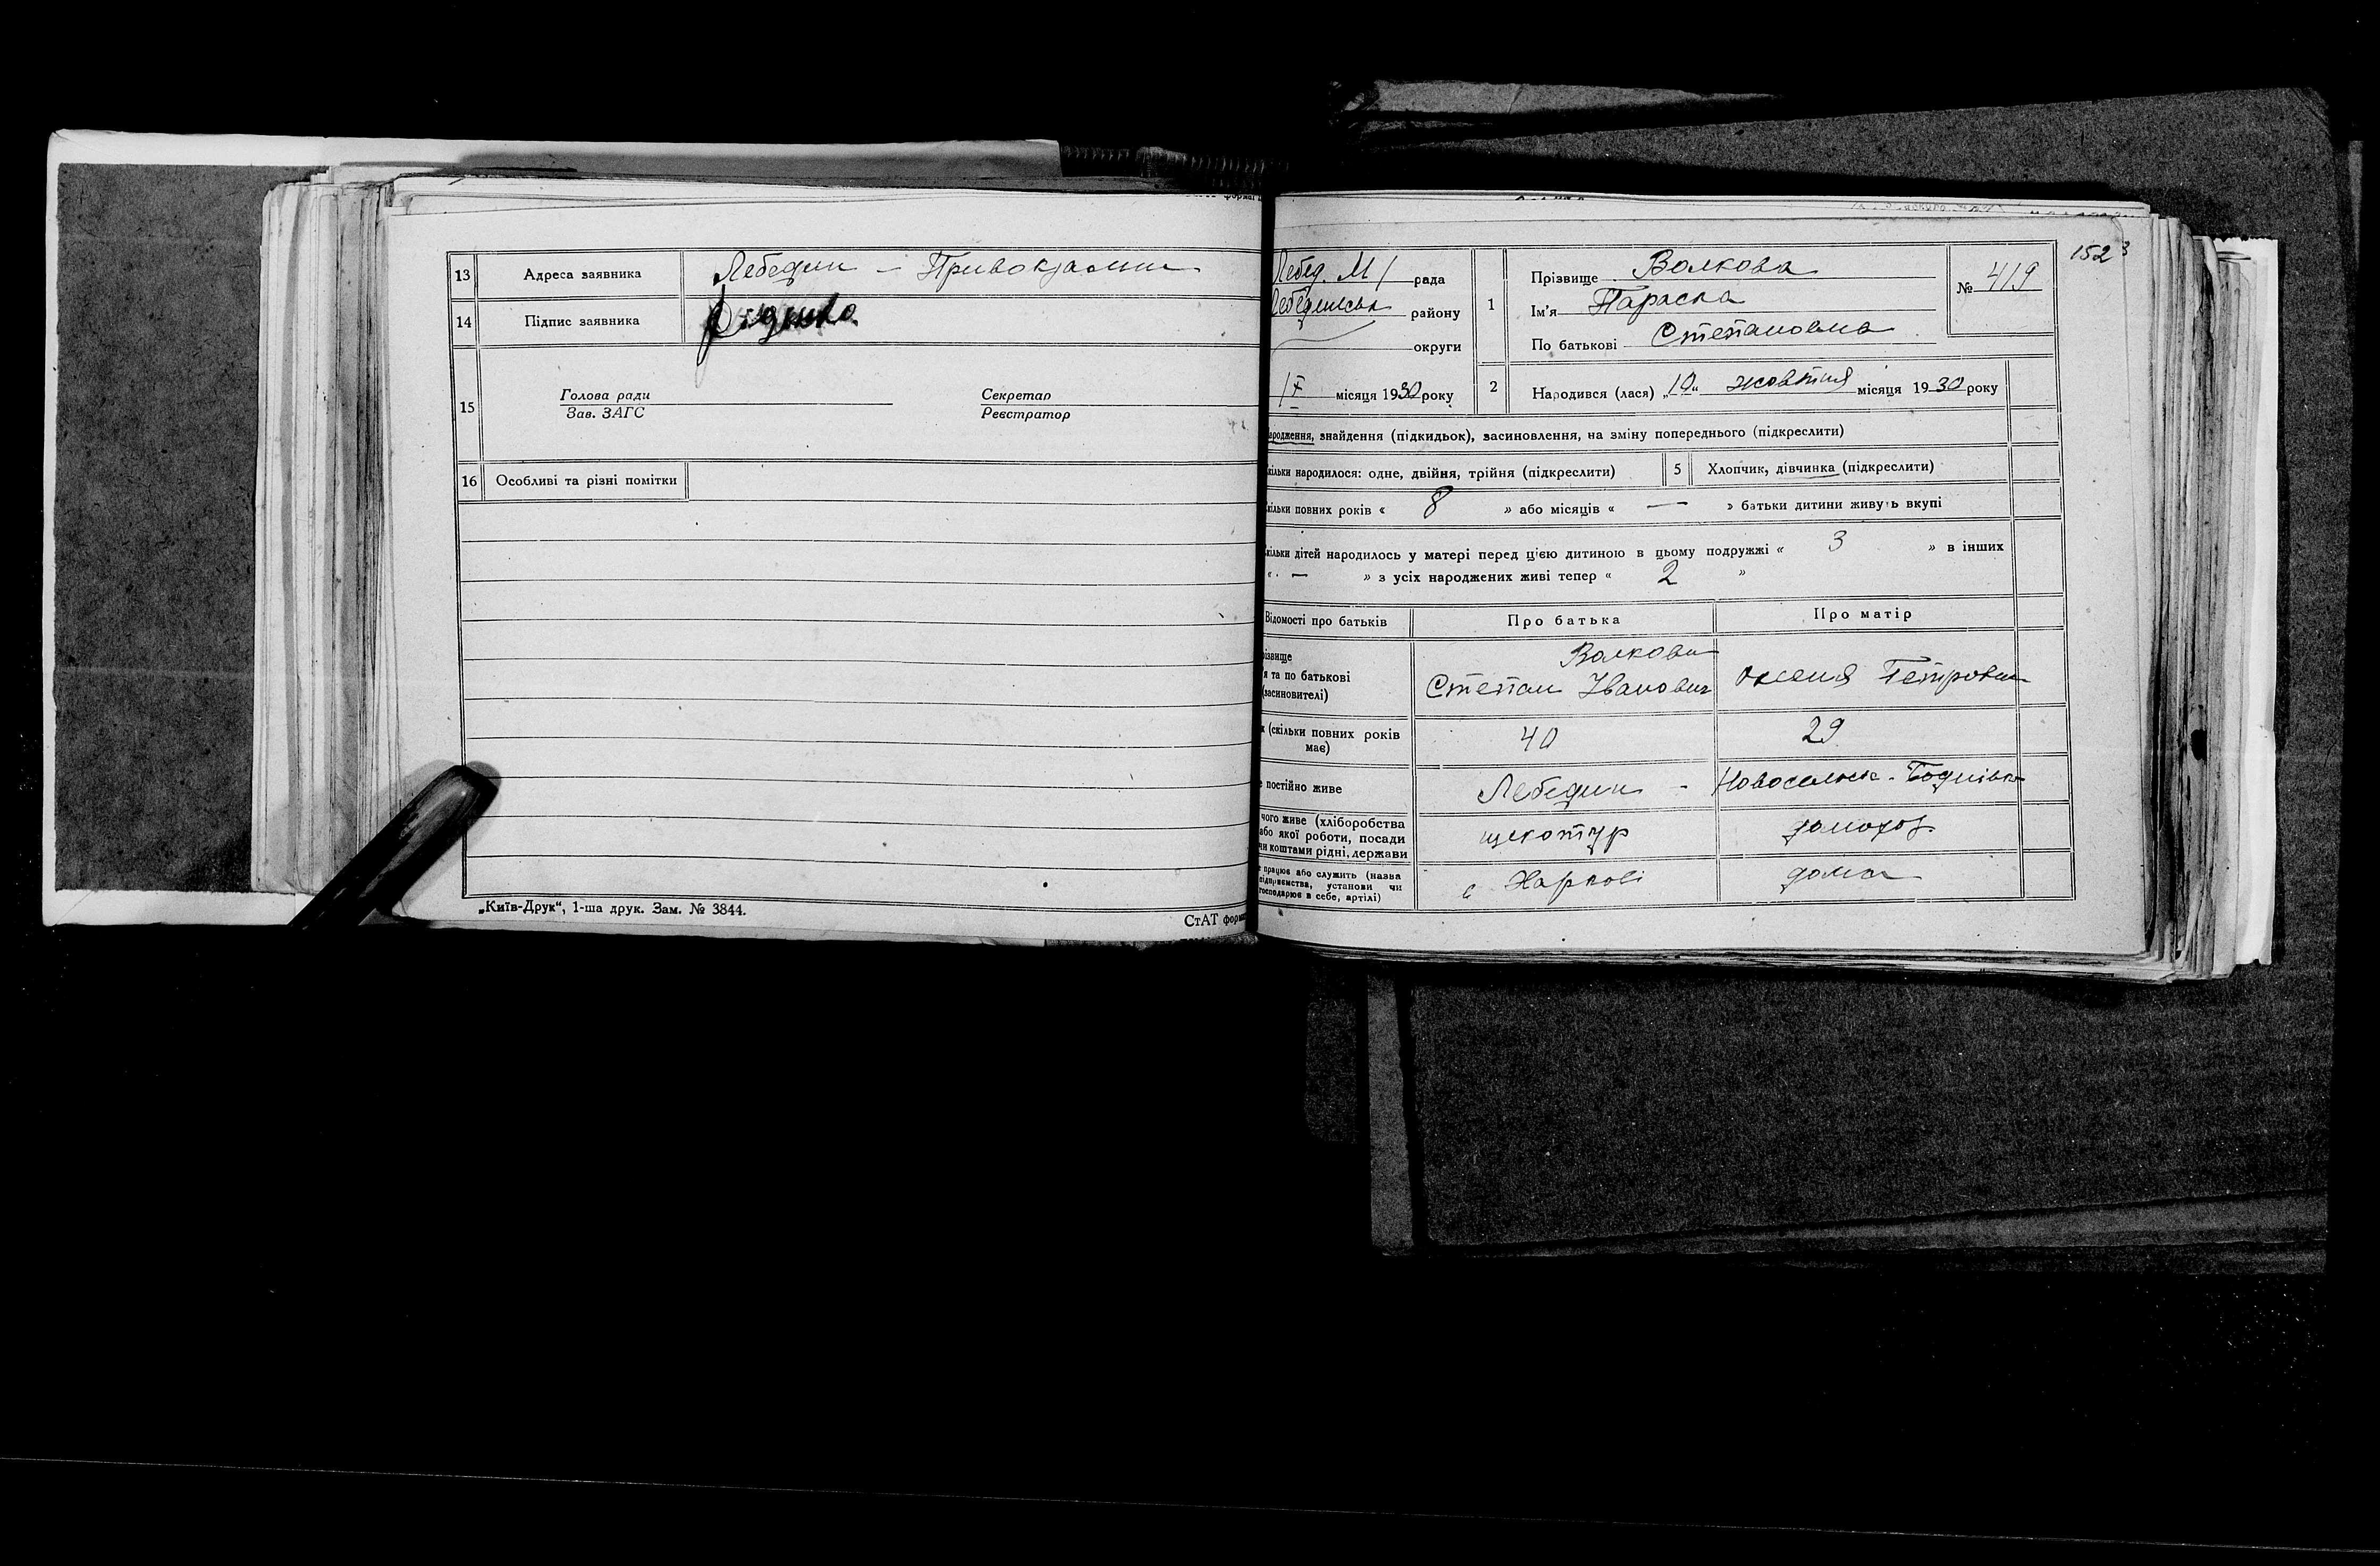 13 Адреса заявника Лебедин –
14 Підпис заявника
15 Голова ради Секретар
Зав. ЗАГС Реєстратор
16 Особливі та різні помітки
„Київ-Друк“, 1-ша друк. Зам. № 3844.
СтАТ форма
152
Лебед. М/ рада
району
округи
місяця 1930 року
1 Прізвище Волкова
Ім'я Параска
По батькові Степановна
№ 419
2 Народився (лася) „10“ жовтня місяця 1930 року
ародження, знайдення (підкидьок), засиновлення, на зміну попереднього (підкреслити)
кільки народилося: одне, двійня, трійня (підкреслити) 5 Хлопчик, дівчинка (підкреслити)
кільки повних років « 8 » або місяців « — » батьки дитини живуть вкупі
кільки дітей народилось у матері перед цією дитиною в цьому подружжі « 3 » в інших
« — » з усіх народжених живі тепер « 2 »
Відомості про батьків Про батька Про матір
різвище
я та по батькові
(засиновителі)
Волкови
Степан Іванович Оксеня Петровн
к (скільки повних років має) 40 29
е постійно живе Лебедин -
чого живе (хліборобства
або якої роботи, посади
чи коштами рідні, держави
щекотур домогос
е працює або служить (назва
підприємства, установи чи
господарює в себе, артілі)
с Харкові дома